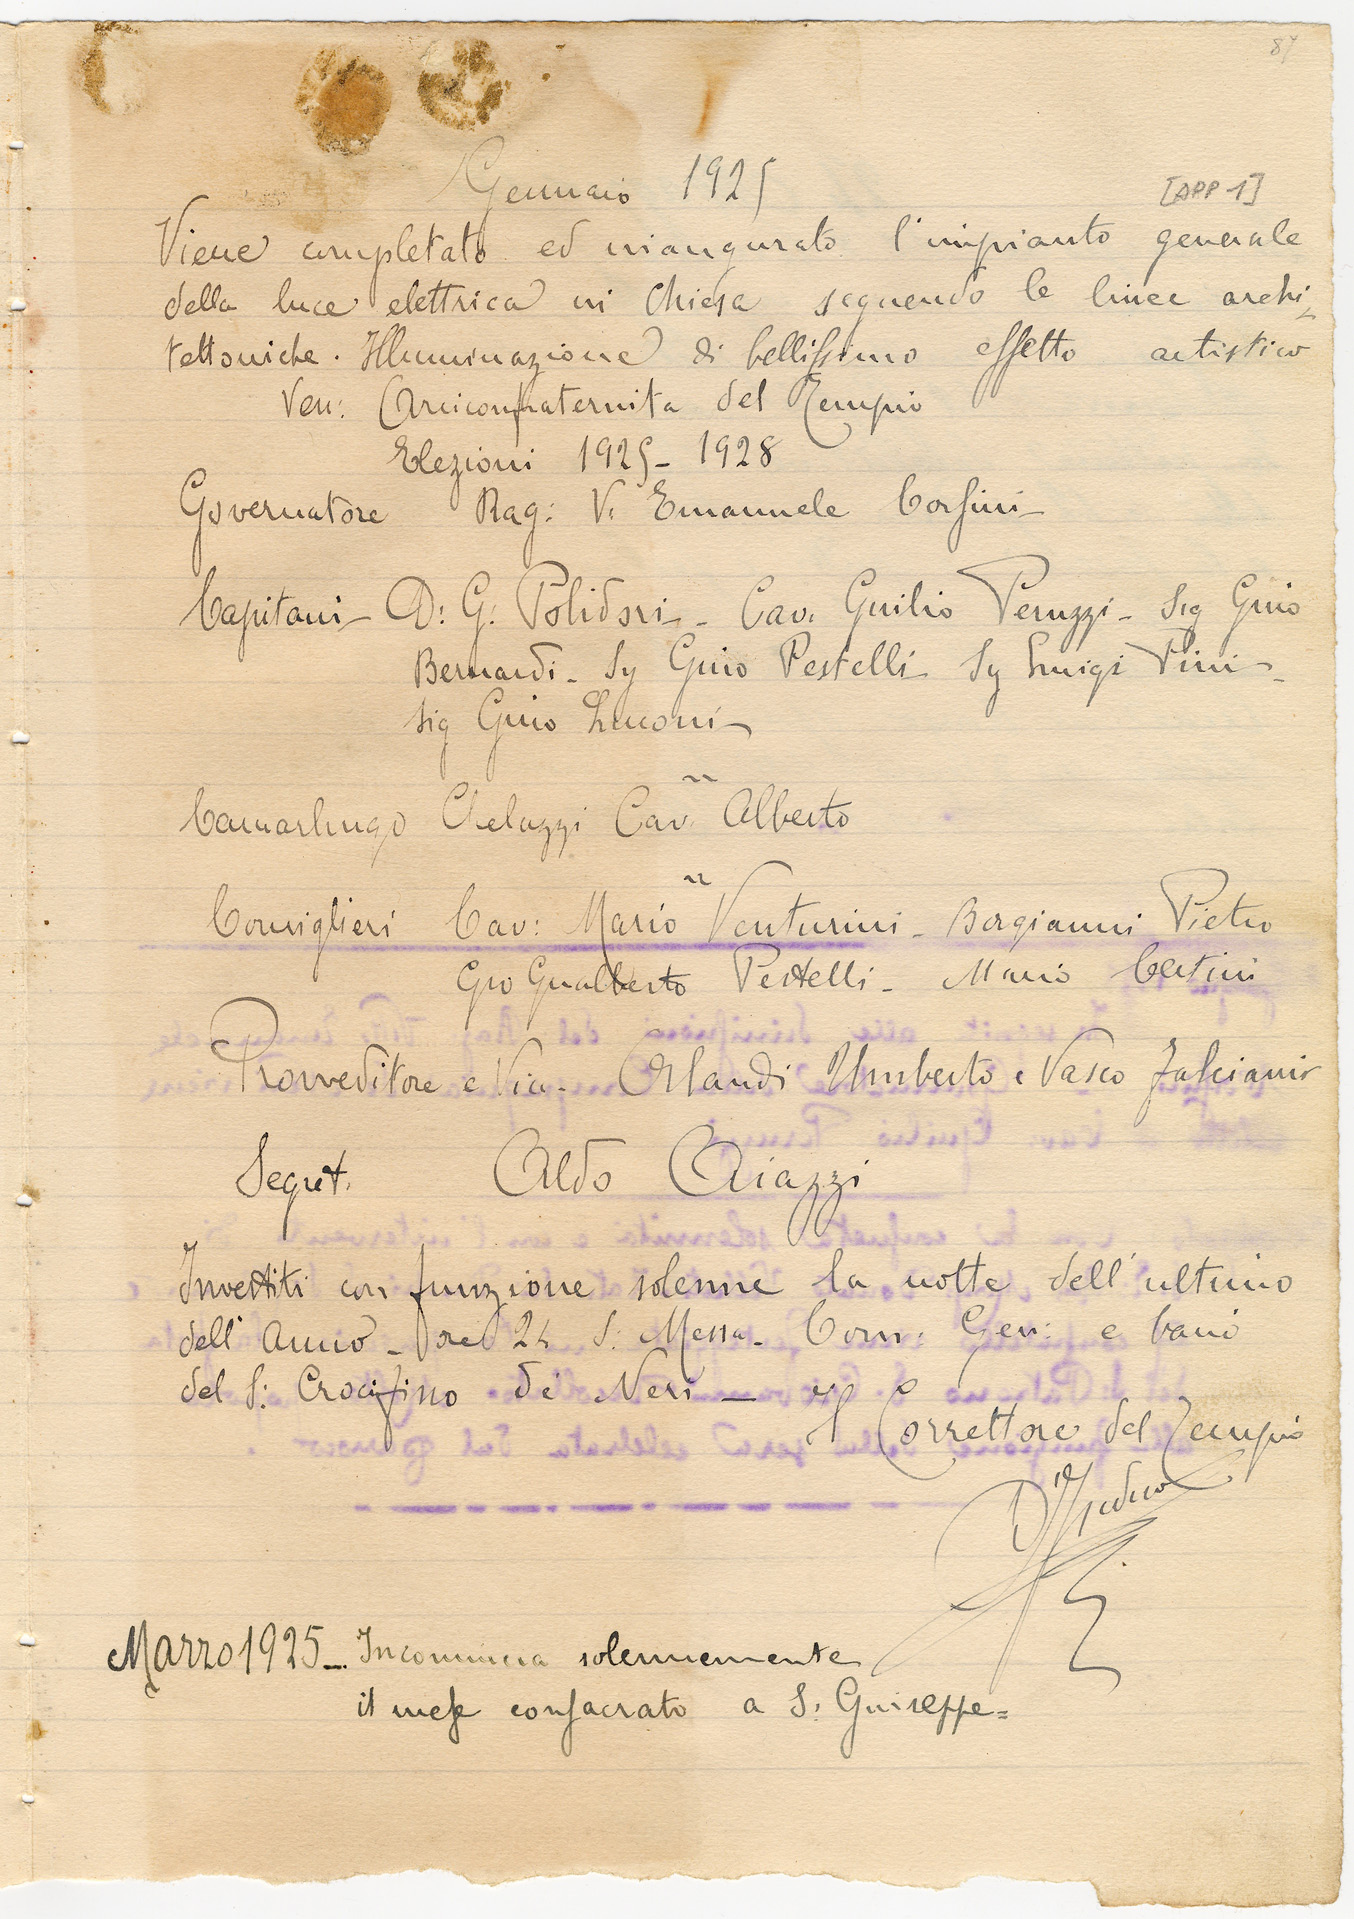 87
Gennaio 1925
[APP 1]
Viene completato ed inaugurato l'impianto generale
della luce elettrica in Chiesa seguendo le linee archi-
tettoniche. Illuminazione di bellissimo effetto artistico
Ven: Arciconfraternita del Tempio
Elezioni 1925 - 1928
Governatore Rag: V. Emanuele Corsini -
Capitani - D: G: Polidori - Cav. Giulio Peruzzi - Sig Gino
Bernardi - Sig Gino Pestelli - Sig Luigi Pini -
Sig Gino Luconi -
Camarlingo Chelazzi Cav. Alberto
Consiglieri Cav: Mario Venturini - Borgianni Pietro
Gio Gualberto Pestelli - Mario Certini
Provveditore e Vice - Orlandi Umberto e Vasco Falciani
Segret. Aldo Aiazzi
Investiti con funzione solenne la notte dell'ultimo
dell'anno - ore 24 S: Messa - Com: Gen: e bacio
del S: Crocifisso de' Neri —
Il Correttore del Tempio
Marzo 1925 - Incomincia solennemente
il mese consacrato a S. Giuseppe =